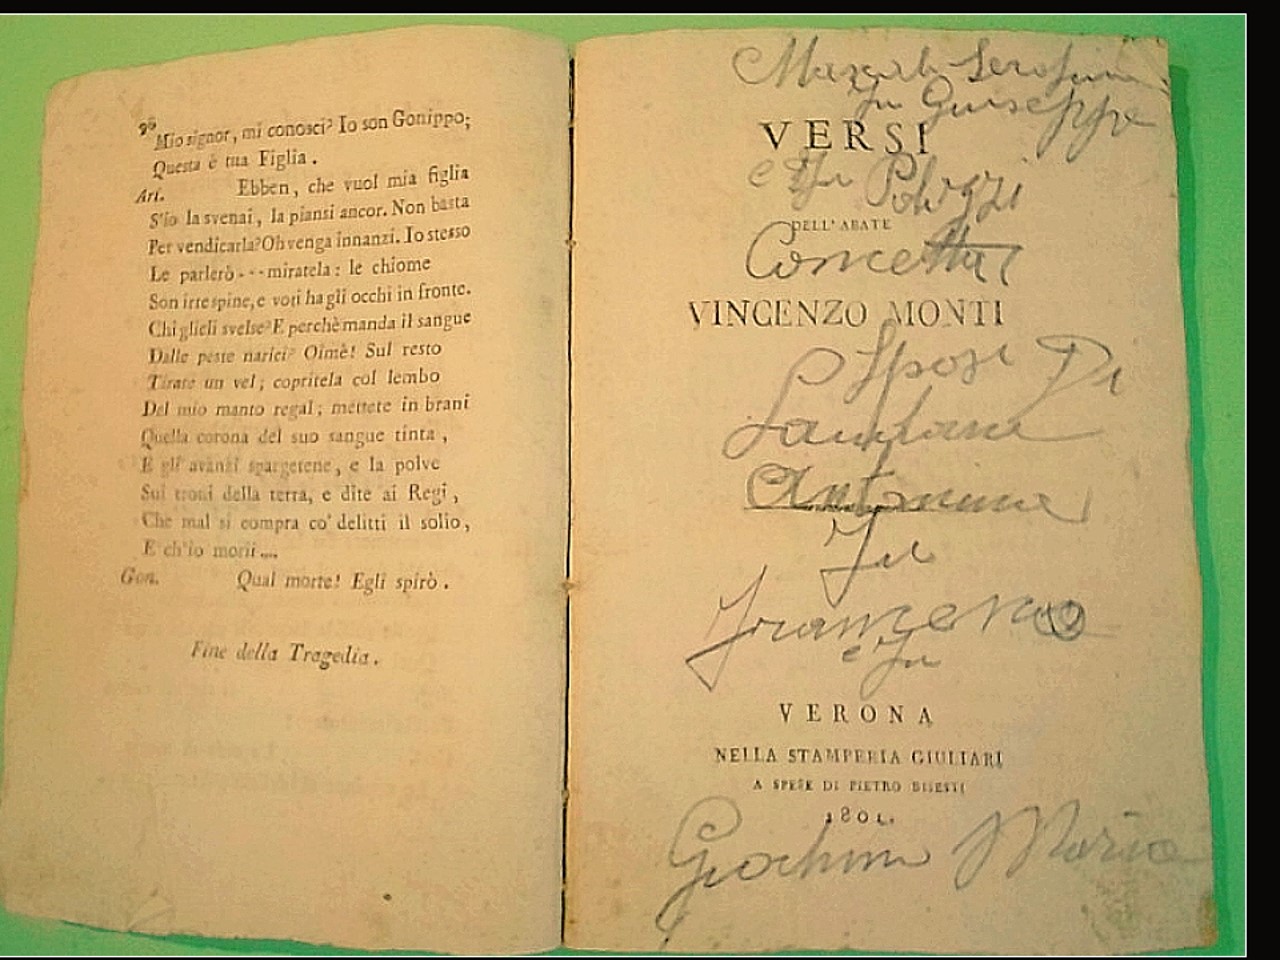 90
Mio signor, mi conosci? Io son Gonippo;
Questa è tua Figlia.
Ari. Ebben, che vuol mia figlia
S'io la svenai, la piansi ancor. Non basta
Per vendicarla? Oh venga innanzi. Io stesso
Le parlerò - - - miratela: le chiome
Son irte spine, e voti ha gli occhi in fronte.
Chi glieli svelse? E perchè manda il sangue
Dalle peste narici? Oimè! Sul resto
Tirate un vel; copritela col lembo
Del mio manto regal; mettete in brani
Quella corona del suo sangue tinta,
E gli avanzi spargetene, e la polve
Sui troni della terra, e dite ai Regi,
Che mal si compra co' delitti il solio,
E ch'io morii....
Gon. Qual morte! Egli spirò.
Fine della Tragedia.
Serafina
fu Giuseppe
VERSI
e fu Polizzi
DELL' ABATE
Concetta
VINCENZO MONTI
Sposi Di
Antonina
fu
Francesco
e fu
VERONA
NELLA STAMPERIA GIULIARI
A SPESE DI PIETRO BISESTI
1801.
Maria